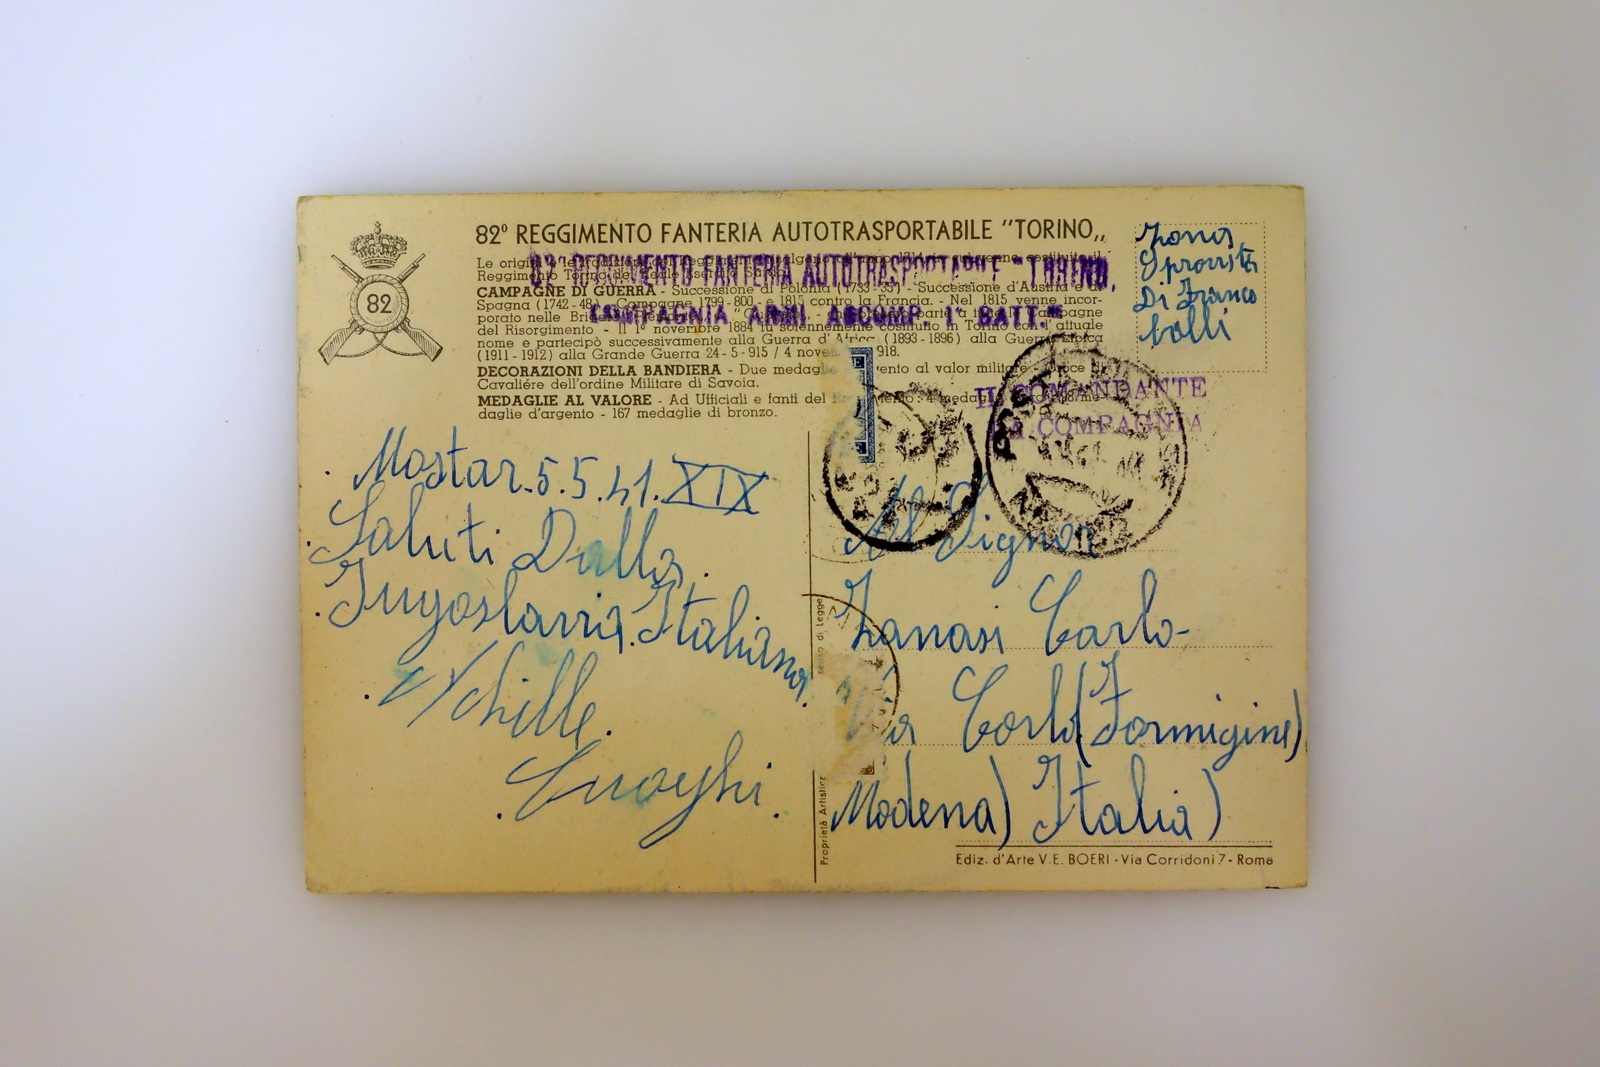 82
82º REGGIMENTO FANTERIA AUTOTRASPORTABILE "TORINO„
82º REGGIMENTO FANTERIA AUTOTRASPORTABILE "TORINO"
COMPAGNIA ARMI ACCOMP. 1º BATT."
Le origini
Reggimento Torino del Reale
CAMPAGNE DI GUERRA - Successione di Polonia (1733-35) - Successione d'Austria e di
Spagna (1742-48) - Campagne 1799-800 - e 1815 contro la Francia. - Nel 1815 venne incor-
porato nelle campagne
del Risorgimento - Il 1º novembre 1884 fu solennemente costituito in Torino con l'attuale
nome e partecipò successivamente alla Guerra d'Africa (1893-1896) alla Guerra Libica
(1911-1912) alla Grande Guerra 24-5-915 / 4 918.
DECORAZIONI DELLA BANDIERA - Due medaglie al valor militare - Croce di
Cavaliére dell'ordine Militare di Savoia.
MEDAGLIE AL VALORE - Ad Ufficiali e fanti del me-
daglie d'argento - 167 medaglie di bronzo.
Zona
Sprovista
Di Franco
bolli
IL COMANDANTE
LA COMPAGNIA
POSTA
Mostar. 5.5.41. XIX
Saluti Dalla.
Jugoslavia. Italiana.
Achille.
Cuoghi.
Al Signor
Zanasi Carlo-
Via Corlo (Formigine)
Modena) Italia)
Proprietà Artistica senso di Legge
Ediz. d'Arte V. E. BOERI - Via Corridoni 7 - Roma